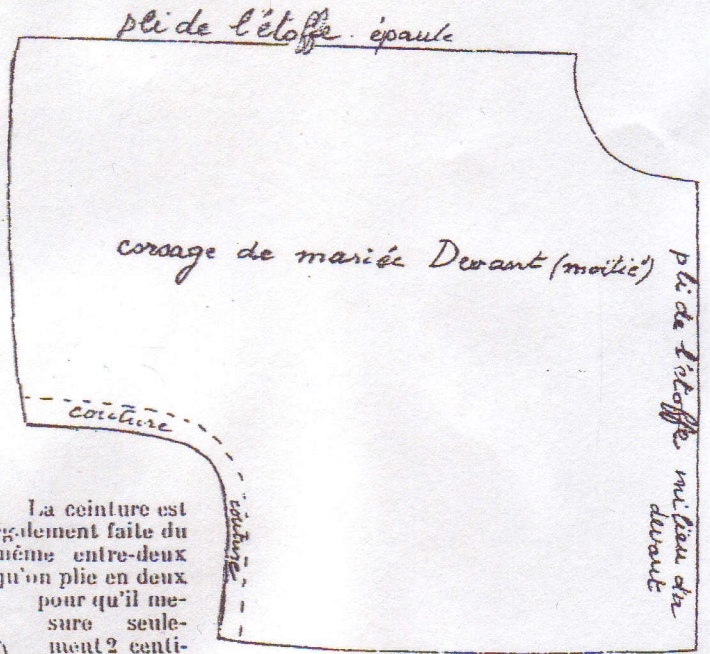 pli de l'étoffe. épaule
corsage de mariée Devant (moitié)
pli de l'étoffe milieu du
devant
couture
couture
La ceinture est
également faite du
même entre-deux
qu'on plie en deux
pour qu'il me-
sure seule-
ment 2 centi-